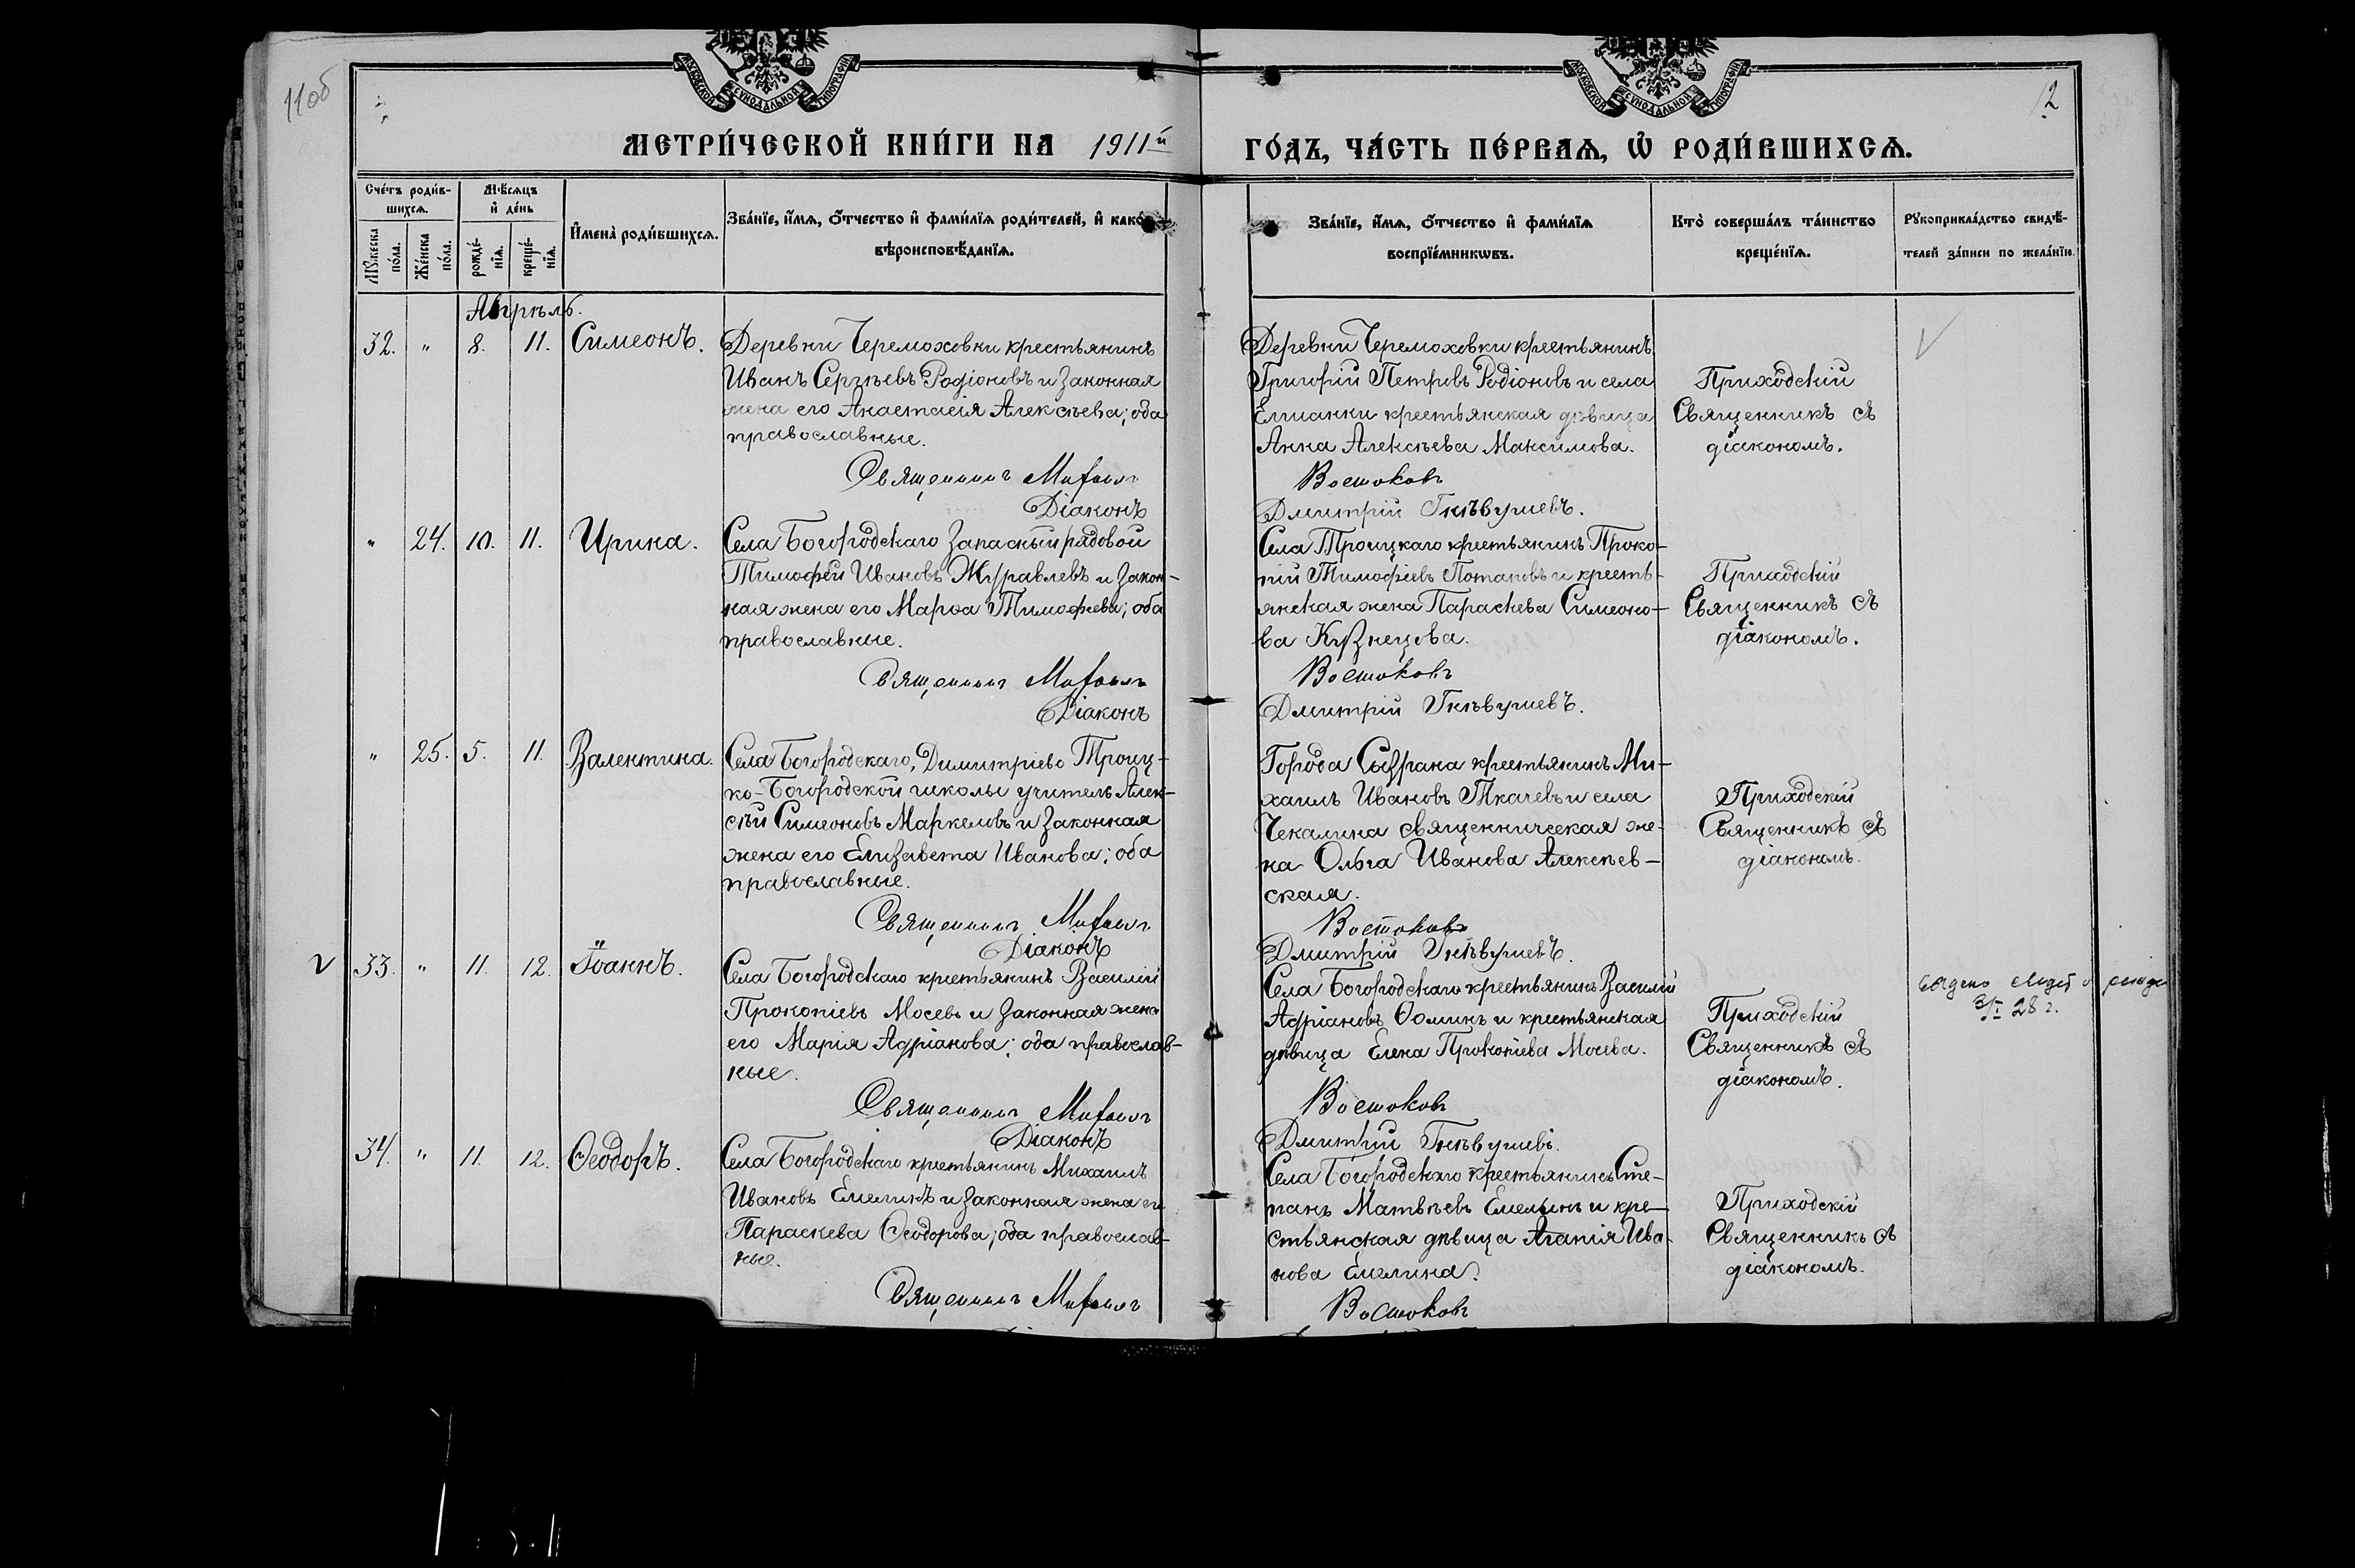 11об
12
МОСКОВСКОЙ СУНОДАЛЬНОЙ ТИПОГРАФІИ
МОСКОВСКОЙ СУНОДАЛЬНОЙ ТИПОГРАФІИ
МЕТРИ́ЧЕСКОЙ КНИ́ГИ НА 1911й ГО́ДЪ, ЧА́СТЬ ПЕ́РВАѦ, Ѿ РОДИ́ВШИХСѦ.
Сче́тъ роди́в-
шихсѧ.
Мꙋ́жеска
по́ла.
Же́нска
по́ла.
Мѣ́сѧцъ
и҆ де́нь
рожде́-
нїѧ.
креще́-
нїѧ.
И҆мена̀ роди́вшихсѧ.
Зва́нїе, и҆́мѧ, ѻ҆́тчество и҆ фами́лїѧ роди́телей, и҆ како́гѡ
вѣроисповѣ́данїѧ.
Зва́нїе, и҆́мѧ, ѻ҆́тчество и҆ фами́лїѧ
воспрїе́мникѡвъ.
Кто̀ соверша́лъ та́инство
креще́нїѧ.
Рꙋкоприкла́дство свидѣ́-
телей за́писи по жела́нїю.
Апрѣль.
32. " 8. 11. Симеонъ.
Деревни Черемоховки крестьянинъ
Иванъ Сергѣевъ Родіоновъ и законная
жена его Анастасія Алексѣева; оба
православные.
Священникъ Михаилъ
Діаконъ
Деревни Черемоховки крестьянинъ
Григорій Петровъ Родіоновъ и села
Елшанки крестьянская дѣвица
Анна Алексѣева Максимова.
Востоковъ
Дмитрій Гнѣвушевъ.
Приходскій
Священникъ съ
діакономъ.
" 24. 10. 11. Ирина.
Села Богородскаго запасный рядовой
Тимофей Ивановъ Журавлевъ и закон-
ная жена его Марѳа Тимофеева; оба
православные.
Священникъ Михаилъ
Діаконъ
Села Троицкаго крестьянинъ Проко-
пій Тимофіевъ Потаповъ и кресть-
янская жена Параскева Симеоно-
ва Кузнецова.
Востоковъ
Дмитрій Гнѣвушевъ.
Приходскій
Священникъ съ
діакономъ.
" 25. 5. 11. Валентина.
Села Богородскаго, Димитріево Троиц-
ко-Богородской школы учитель Алек-
сѣй Симеоновъ Маркеловъ и законная
жена его Елизавета Иванова; оба
православные.
Священникъ Михаилъ
Діаконъ
Города Сызрана крестьянинъ Ми-
хаилъ Ивановъ Ткачевъ и села
Чекалина священническая же-
на Ольга Иванова Алексѣев-
ская.
Востоковъ
Дмитрій Гнѣвушевъ.
Приходскій
Священникъ съ
діакономъ.
33. " 11. 12. Іоаннъ.
Села Богородскаго крестьянинъ Василій
Прокопіевъ Мосевъ и законная жена
его Марія Адріанова; оба православ-
ные.
Священникъ Михаилъ
Діаконъ
Села Богородскаго крестьянинъ Василій
Адріановъ Ѳоминъ и крестьянская
дѣвица Елена Прокопіева Мосева.
Востоковъ
Дмитрій Гнѣвушевъ.
Приходскій
Священникъ съ
діакономъ.
3/I 28 г.
34. " 11. 12. Ѳеодоръ.
Села Богородскаго крестьянинъ Михаилъ
Ивановъ Емелинъ и законная жена его
Параскева Ѳеодорова; оба православ-
ные.
Священникъ Михаилъ
Села Богородскаго крестьянинъ Сте-
панъ Матвѣевъ Емелинъ и кре-
стьянская дѣвица Агапія Ива-
нова Емелина.
Востоковъ
Приходскій
Священникъ съ
діакономъ.